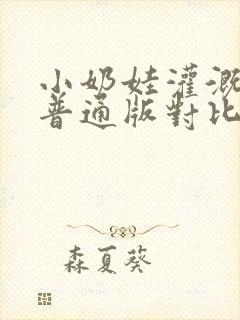 小奶娃灌溉
普通版對比
森夏葵